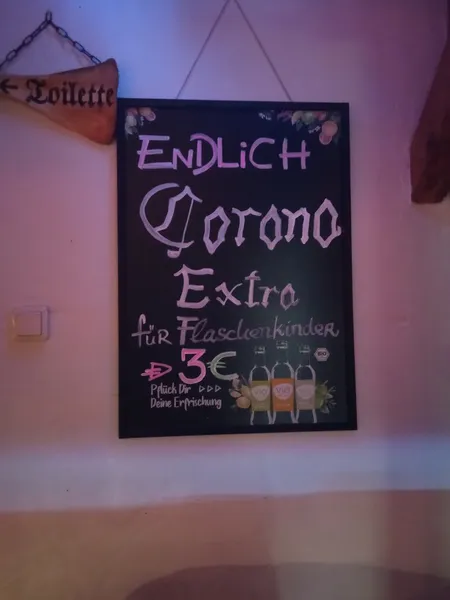 ← Toilette
ENDLiCH
Corona
Extra
füR Flaschenkinder
3€
Pflück Dir
Deine Erfrischung